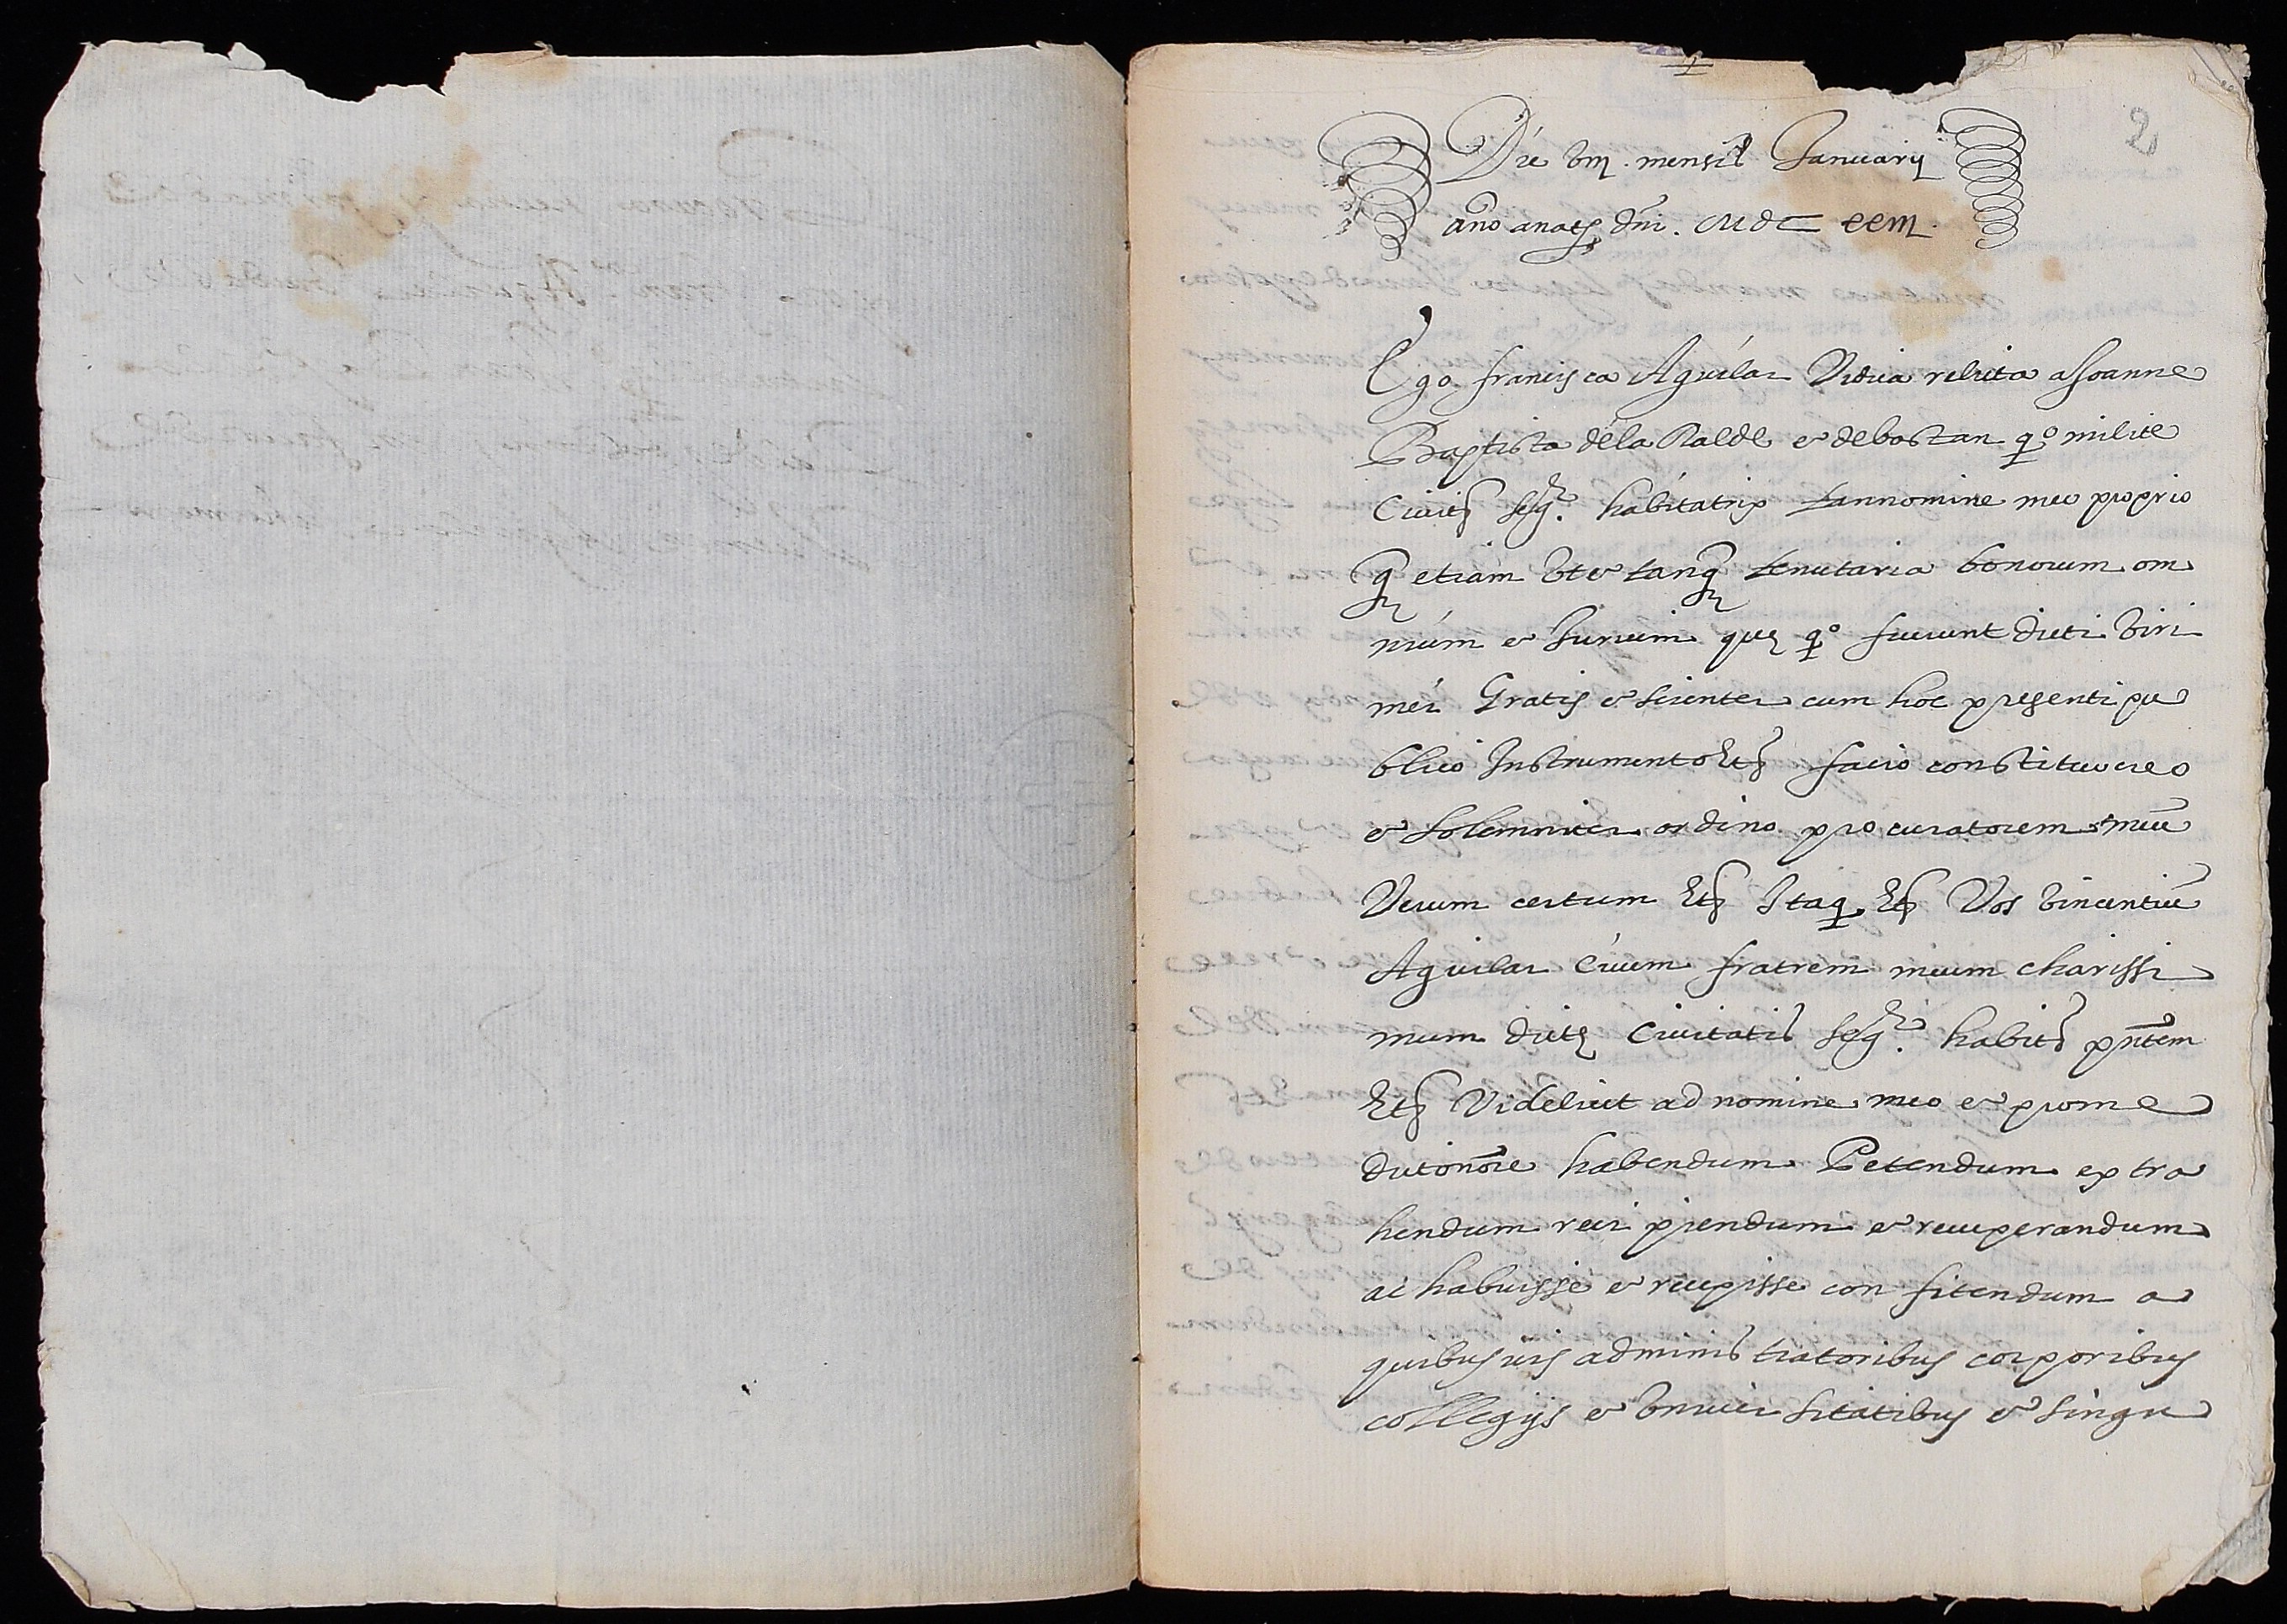 2
Die vııj. mensis Januarij
año a natᵉ dñi. MDC
Ego francisca Aguilar Vidua relicta a Joanne
Baptista de la Ralde et de bastan q.º milite
Ciuitⁱˢ segᵉ. habitatrix tan nomine meo proprio
q̃ etiam vt et tanq̃ tenutaria bonorum om
nium et Jurium que q.º fuerunt dicti viri
mei Gratis et scienter cum hoc presenti pu
blico Instrumento etc facio constituo creo
et solemniter ordino procuratorem meũ
Verum certum etc Itaq. etc Vos vincentiũ
Aguilar Ciuem fratrem meum charissi
mum dicte Ciuitatis segᵉ. habitᵉ pñtem
etc Videlicet ad nomine meo et pro me
dictonõie habendum Petendum extra
hendum recipiendum et recuperandum
ac habuisse et recepisse confitendum a
quibusuis administratoribus corporibus
collegijs et vniuersitatibus et singu